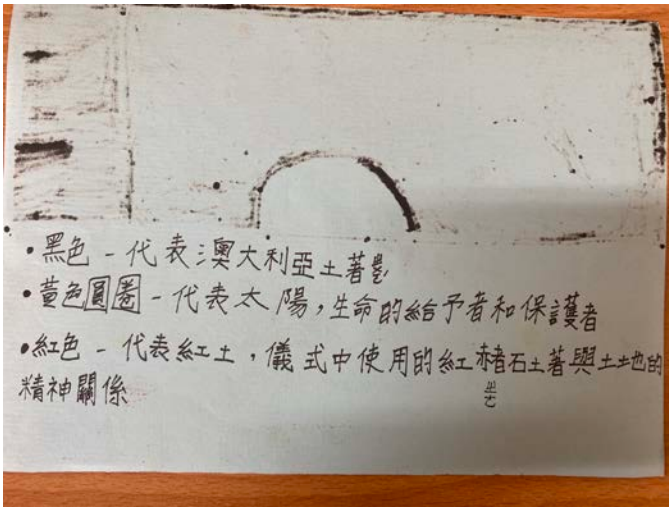 •黑色 - 代表澳大利亞土著
•黃色圓圈 - 代表太陽,生命的給予者和保護者
•紅色 - 代表紅土,儀式中使用的紅赭石土著與土地的
精神關係